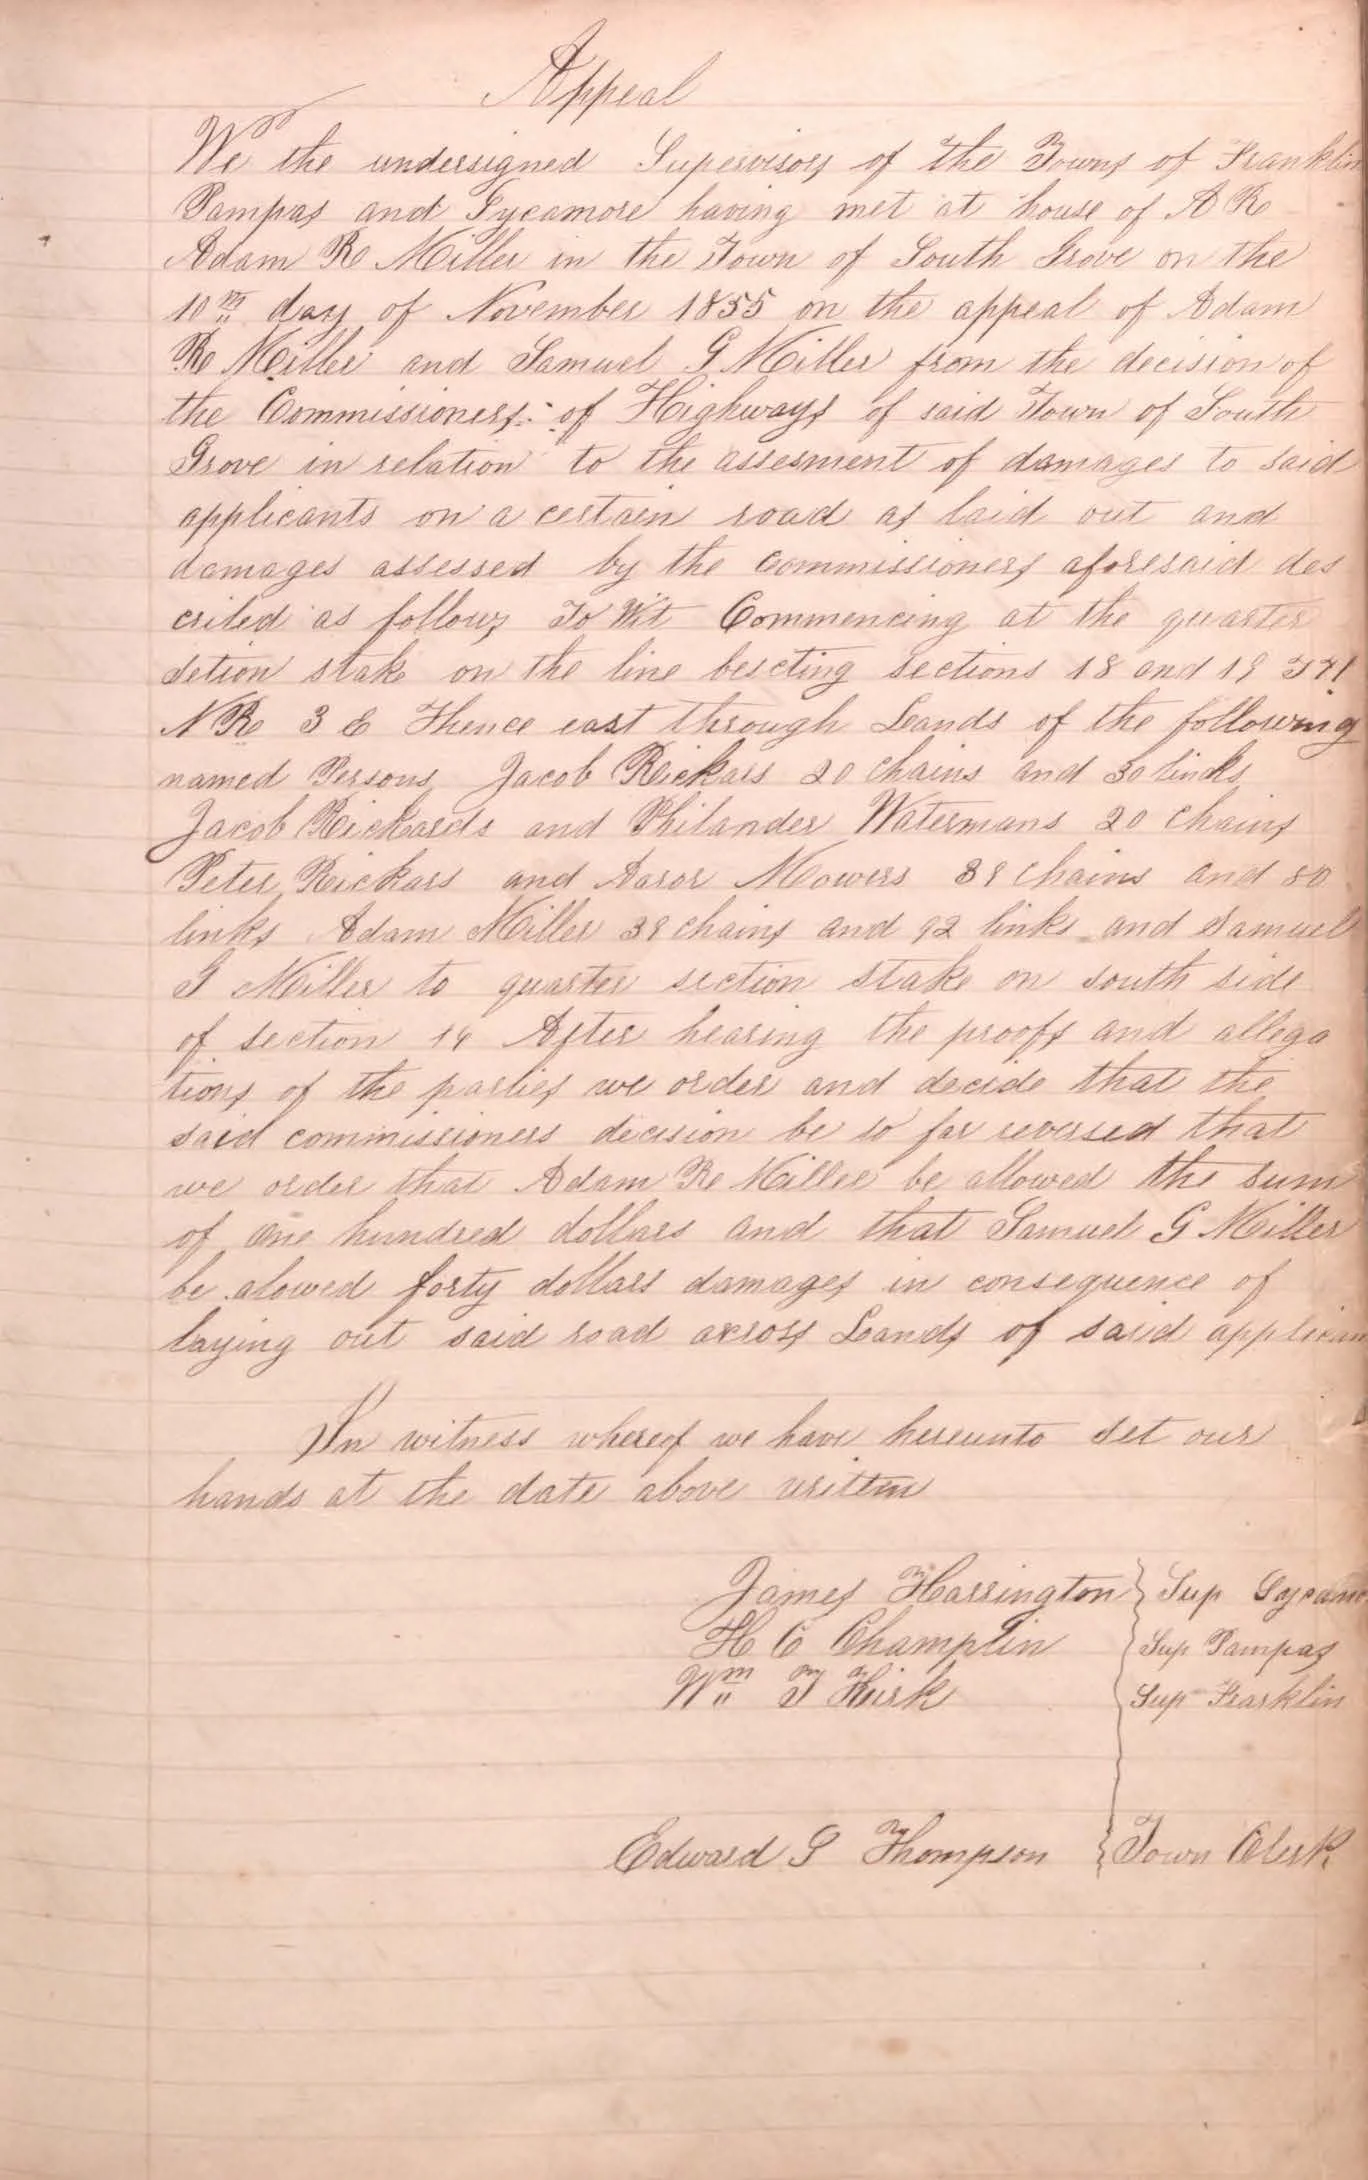 Appeal
We the undersigned Supervisors of the Towns of Franklin
Pampas and Sycamore having met at house of A R
Adam R Miller in the Town of South Grove on the
10th day of November 1855 on the appeal of Adam
R Miller and Samuel G Miller from the decision of
the Commissioners of Highways of said Town of South
Grove in relation to the assesment of damages to said
applicants on a certain road as laid out and
damages assessed by the commissioners aforesaid des
cribed as follows To Wit Commencing at the quarter
setion stake on the line bescting sections 18 and 19 T41
N R 3 E Thence east through Lands of the following
named Persons Jacob Rickars 20 chains and 30 links
Jacob Rickards and Philander Watermans 20 chains
Peter Rickars and Aaror Mowers 39 chains and 80
links Adam Miller 39 chains and 92 links and Samuel
G Miller to quarter section stake on south side
of section After hearing the proofs and allega
tions of the parties we order and decide that the
said commissioners decision be so far reversed that
we order that Adam R Miller be allowed the sum
of one hundred dollars and that Samuel G Miller
be alowed forty dollars damages in consequence of
laying out said road across Lands of said applican
In witness whereof we have hereunto set our
hands at the date above written
James Harrington } Sup Sycamo
H C Champlin Sup Pampas
Wm T Kirk Sup Franklin
Edward G Thompson } Town Clerk